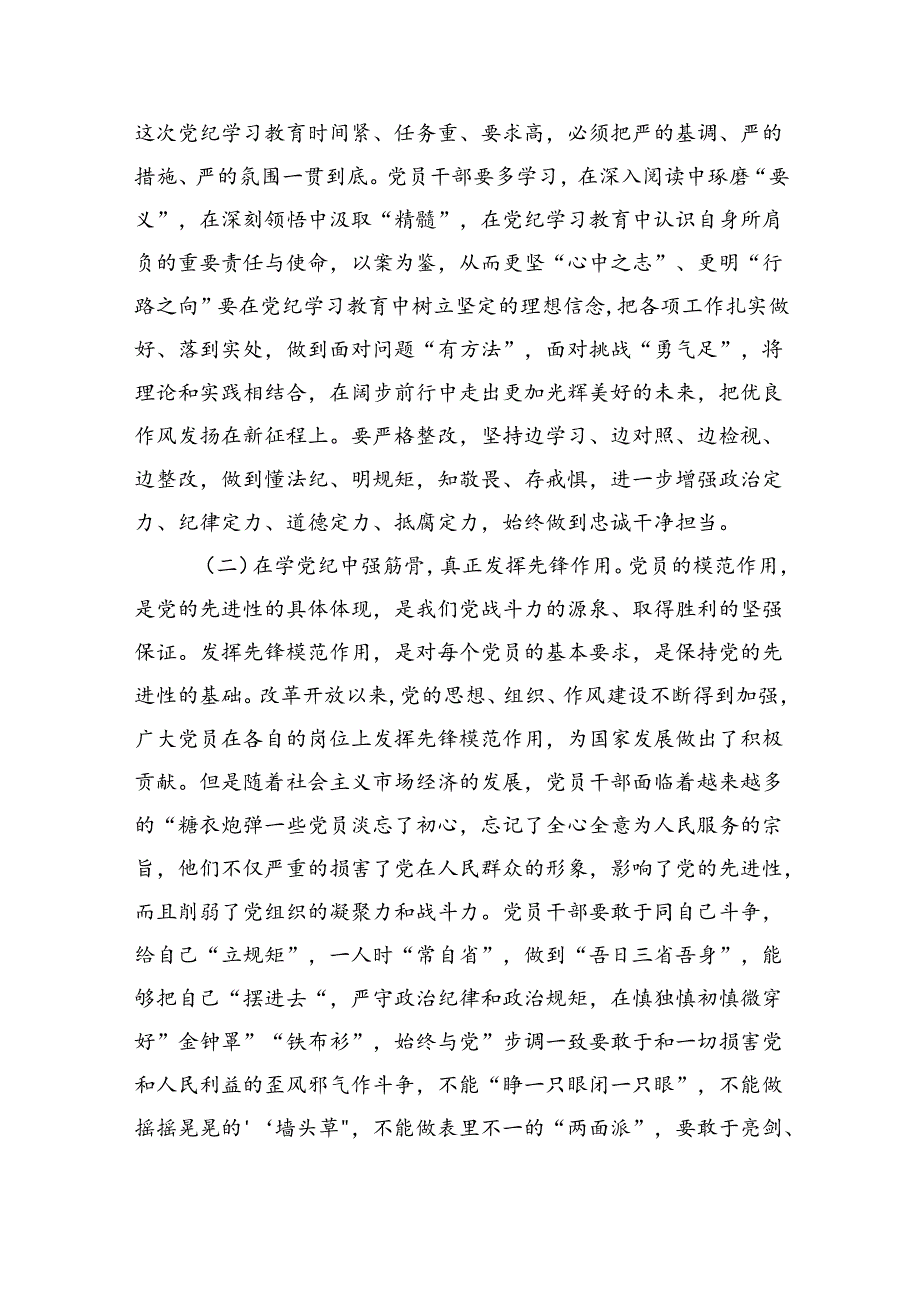 这次党纪学习教育时间紧、任务重、要求高，必须把严的基调、严的
措施、严的氛围一贯到底。党员干部要多学习，在深入阅读中琢磨“要
义”，在深刻领悟中汲取“精髓”，在党纪学习教育中认识自身所肩
负的重要责任与使命，以案为鉴，从而更坚“心中之志”、更明“行
路之向”要在党纪学习教育中树立坚定的理想信念,把各项工作扎实做
好、落到实处，做到面对问题“有方法”，面对挑战“勇气足”，将
理论和实践相结合，在阔步前行中走出更加光辉美好的未来，把优良
作风发扬在新征程上。要严格整改，坚持边学习、边对照、边检视、
边整改，做到懂法纪、明规矩，知敬畏、存戒惧，进一步增强政治定
力、纪律定力、道德定力、抵腐定力，始终做到忠诚干净担当。
（二）在学党纪中强筋骨,真正发挥先锋作用。党员的模范作用，
是党的先进性的具体体现，是我们党战斗力的源泉、取得胜利的坚强
保证。发挥先锋模范作用，是对每个党员的基本要求，是保持党的先
进性的基础。改革开放以来,党的思想、组织、作风建设不断得到加强，
广大党员在各自的岗位上发挥先锋模范作用，为国家发展做出了积极
贡献。但是随着社会主义市场经济的发展，党员干部面临着越来越多
的“糖衣炮弹一些党员淡忘了初心，忘记了全心全意为人民服务的宗
旨，他们不仅严重的损害了党在人民群众的形象，影响了党的先进性，
而且削弱了党组织的凝聚力和战斗力。党员干部要敢于同自己斗争，
给自己“立规矩”，一人时“常自省”，做到“吾日三省吾身”，能
够把自己“摆进去“，严守政治纪律和政治规矩，在慎独慎初慎微穿
好”金钟罩”“铁布衫”，始终与党”步调一致要敢于和一切损害党
和人民利益的歪风邪气作斗争，不能“睁一只眼闭一只眼”，不能做
摇摇晃晃的'‘墙头草"，不能做表里不一的“两面派”，要敢于亮剑、